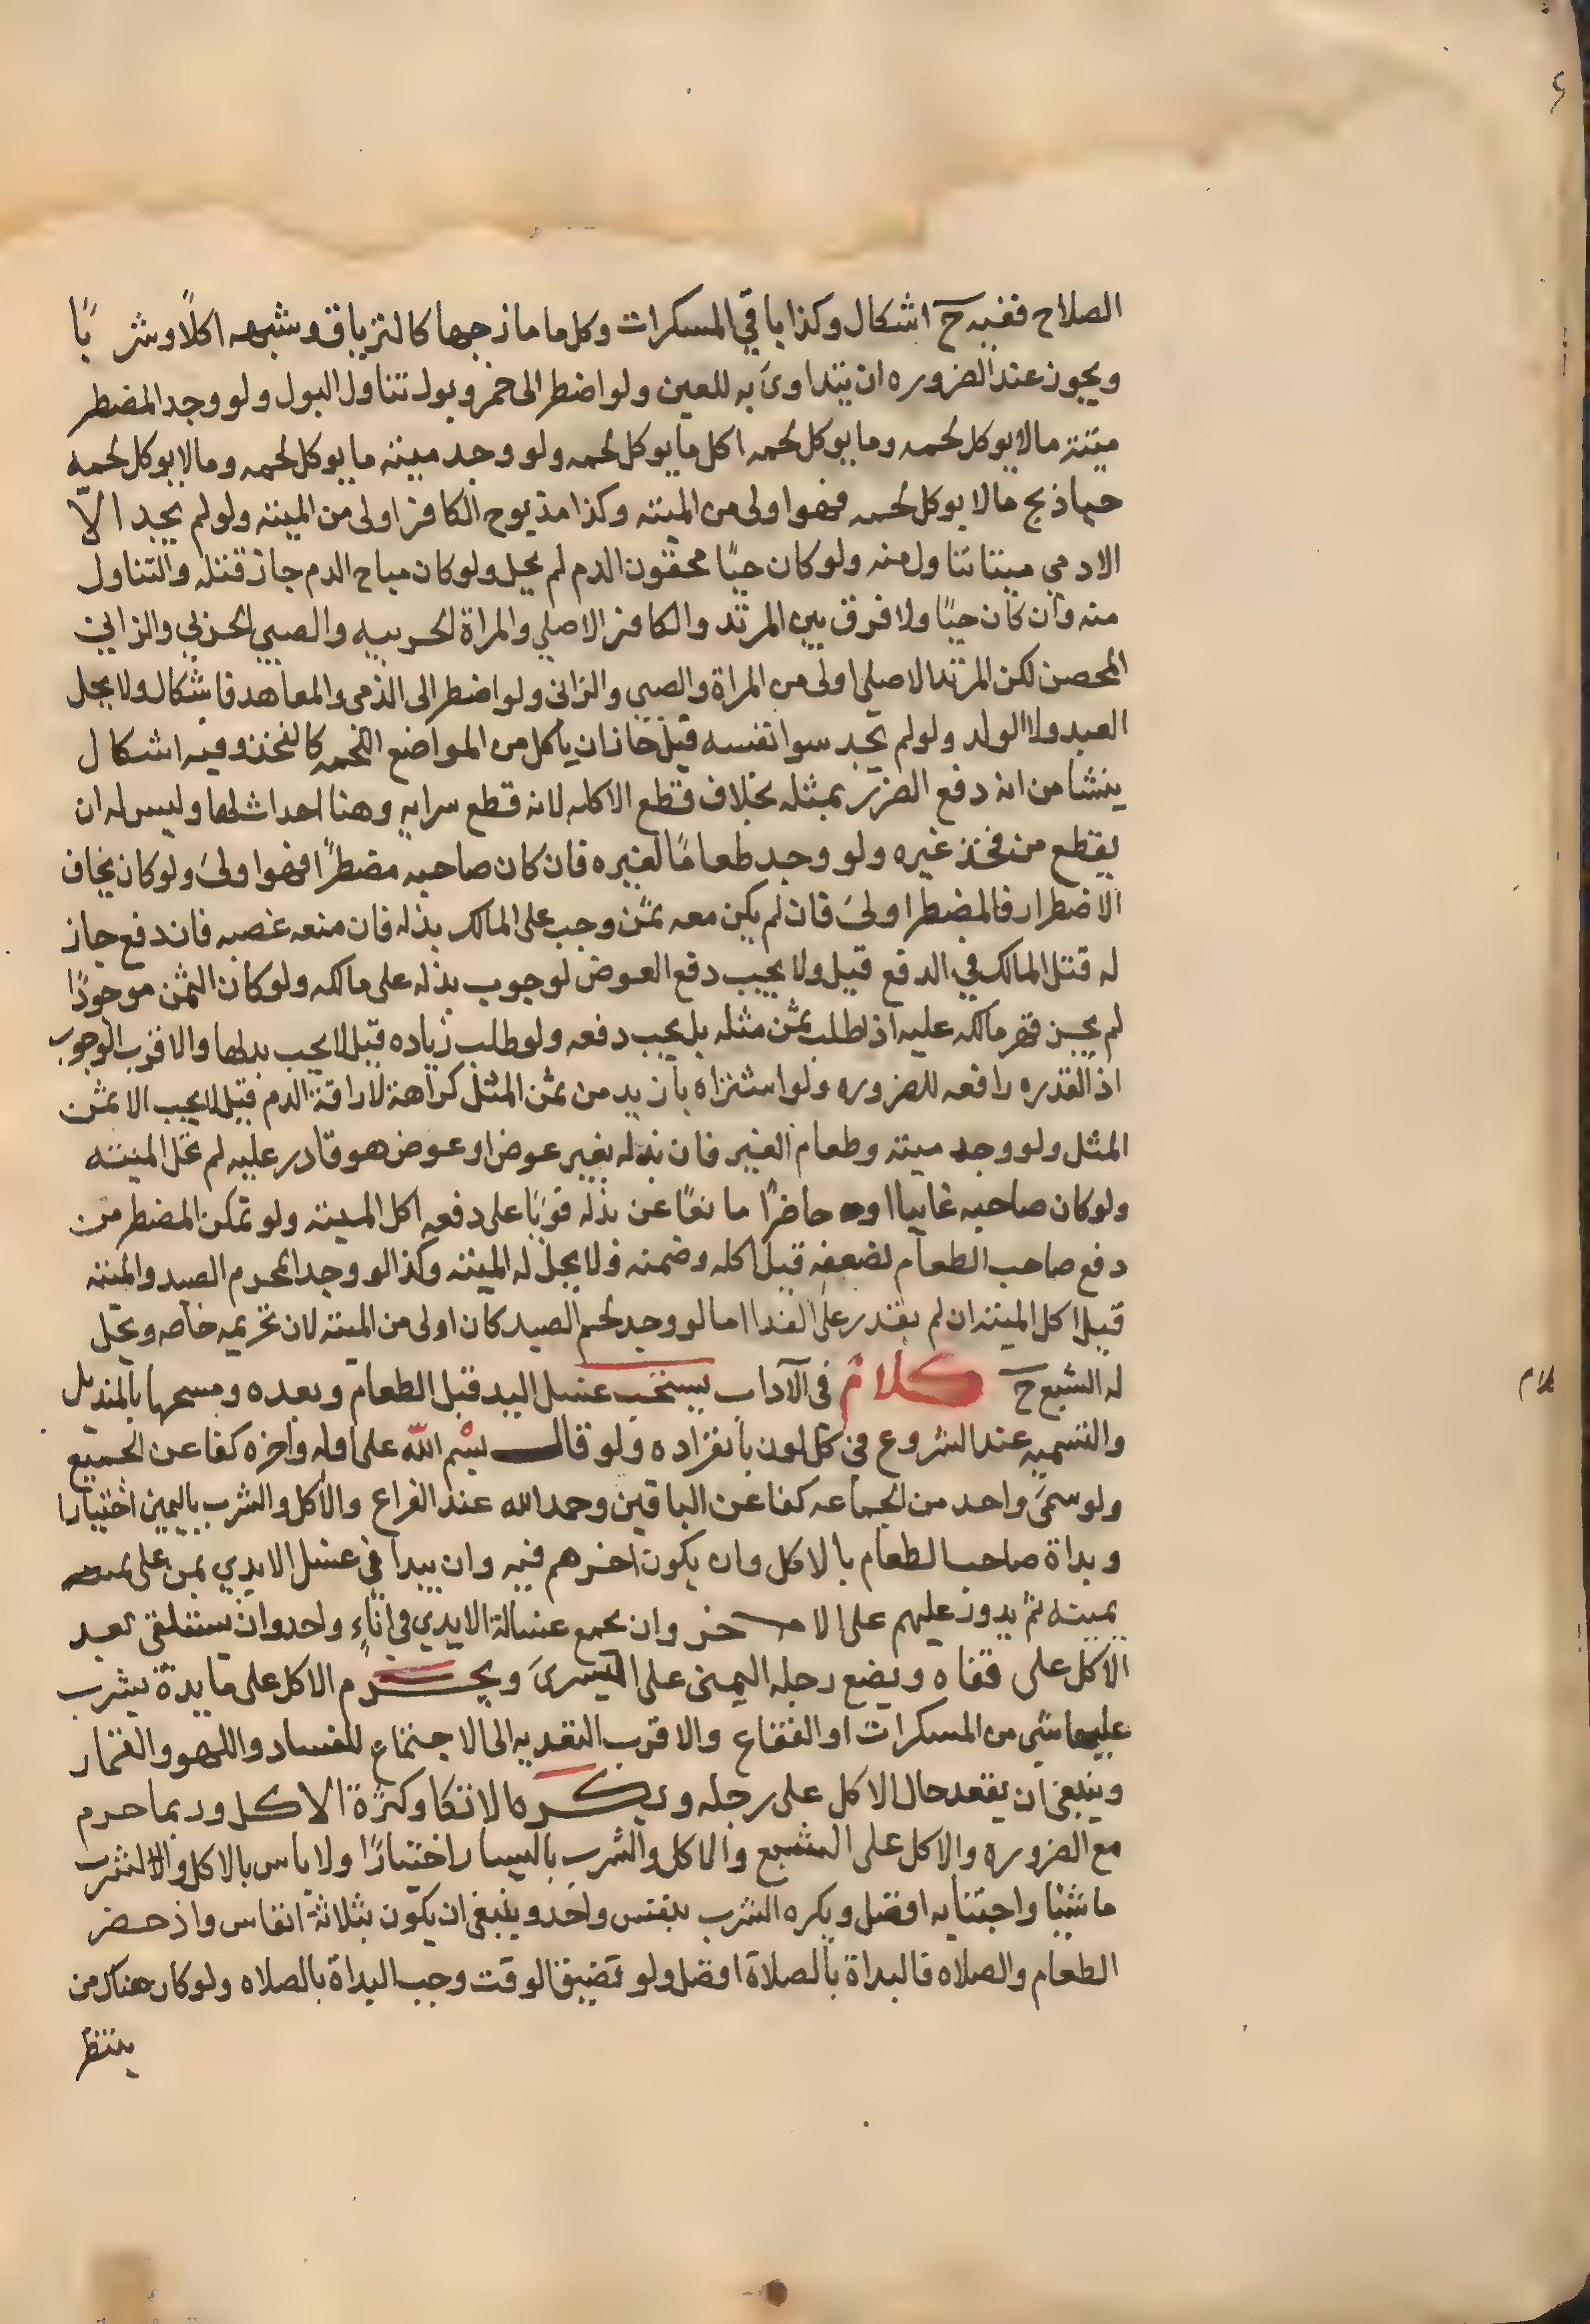 الصلاح ففيه ح اشكال وكذا باقي المسكرات وكل ما مازجها كالترياق وشبهه اكلًا وشربًا
ويجوز عند الضروره ان يتداوى به للعين ولو اضطر الى خمر وبول تناول البول ولو وجد المضطر
ميتة ما لا يوكل لحمه وما يوكل لحمه اكل ما يوكل لحمه ولو وجد ميته ما يوكل لحمه وما لا يوكل لحمه
حيا ذبح ما لا يوكل لحمه فهو اولى من الميته وكذا مذبوح الكافر اولى من الميته ولو لم يجد الّا
الادمي ميتا تناول منه ولو كان حيًا محقون الدم لم يحل ولو كان مباح الدم جاز قتله والتناول
منه وان كان حيًا ولا فرق بين المرتد والكافر الاصلي والمراة الحربيه والصبي الحربي والزاني
المحصن لكن المرتد الاصلي اولى من المراة والصبي والزانى ولو اضطر الى الذمى والمعاهد فاشكال ولا يحل
العبد ولا الولد ولو لم يجد سوا نفسه قيل جاز ان ياكل من المواضع اللحمه كالفخذ وفيه اشكال
ينشا من انه دفع الضرر بمثله بخلاف قطع الاكله لانه قطع سرايه وهنا احداث لها وليس له ان
يقطع من فخذ غيره ولو وجد طعامًا لغيره فان كان صاحبه مضطرًا فهو اولى ولو كان يخاف
الاضطرار فالمضطر اولى فان لم يكن معه ثمن وجب على المالك بذله فان منعه غصبه فان دفع جاز
له قتل المالك في الدفع قيل ولا يجب دفع العوض لوجوب بذله على مالكه ولو كان الثمن موجودًا
لم يجز قهر مالكه عليه اذ اطلب ثمن مثله بل يجب دفعه ولو طلب زياده قيل لا يجب بذلها والاقرب الوجوب
اذ القدره رافعه للضروره ولو اشتراه بازيد من ثمن المثل كراهة لاراقة الدم قيل لا يجب الا ثمن
المثل ولو وجد ميته وطعام الغير فان بذله بغير عوض او عوض هو قادر عليه لم تحل الميته
ولو كان صاحبه غايبا او حاضرًا مانعًا عن بذله قويًا على دفعه اكل الميته ولو تمكن المضطر من
دفع صاحب الطعام لضعفه قيل اكله وضمنه ولا يحل له الميته وكذا لو وجد المحرم الصيد والميته
قيل اكل الميته ان لم يقدر على الفدا اما لو وجد لحم الصيد كان اولى من الميته لان تحريمه خاصه ويحل
له الشبع ح كلام فى الآداب يستحب غسل اليد قبل الطعام وبعده ومسحها بالمنديل
والتسميه عند الشروع في كل لون بانفراده ولو قال بسم الله على اوله واخره كفا عن الجميع
ولو سمى واحد من الجماعه كفا عن الباقين وحمد الله عند الفراغ والاكل والشرب باليمين اختيارا
وبداة صاحب الطعام بالاكل وان يكون اخرهم فيه وان يبدا في غسل الايدي بمن على
يمينه ثم يدور عليهم على الاخر وان يجمع غسالة الايدي في اناء واحد وان يستلقى بعد
الاكل على قفاه ويضع رجله اليمنى على اليسرى ويحرم الاكل على مايدة يشرب
عليها شي من المسكرات او الفقاع والاقرب التعديه الى الاجتماع للفساد واللهو والقمار
وينبغى ان يقعد حال الاكل على رجله ويكره الاتكا وكثرة الاكل وربما حرم
مع الضروره والاكل على الشبع والاكل والشرب باليسار اختيارًا ولا باس بالاكل والشرب
ماشيًا واجتنابه افضل ويكره الشرب بنفس واحد وينبغى ان يكون بثلاثة انفاس واذ حضر
الطعام والصلاه فالبداة بالصلاة افضل ولو تضيق الوقت وجب البداة بالصلاه ولو كان هناك من
ينتظر
كلام